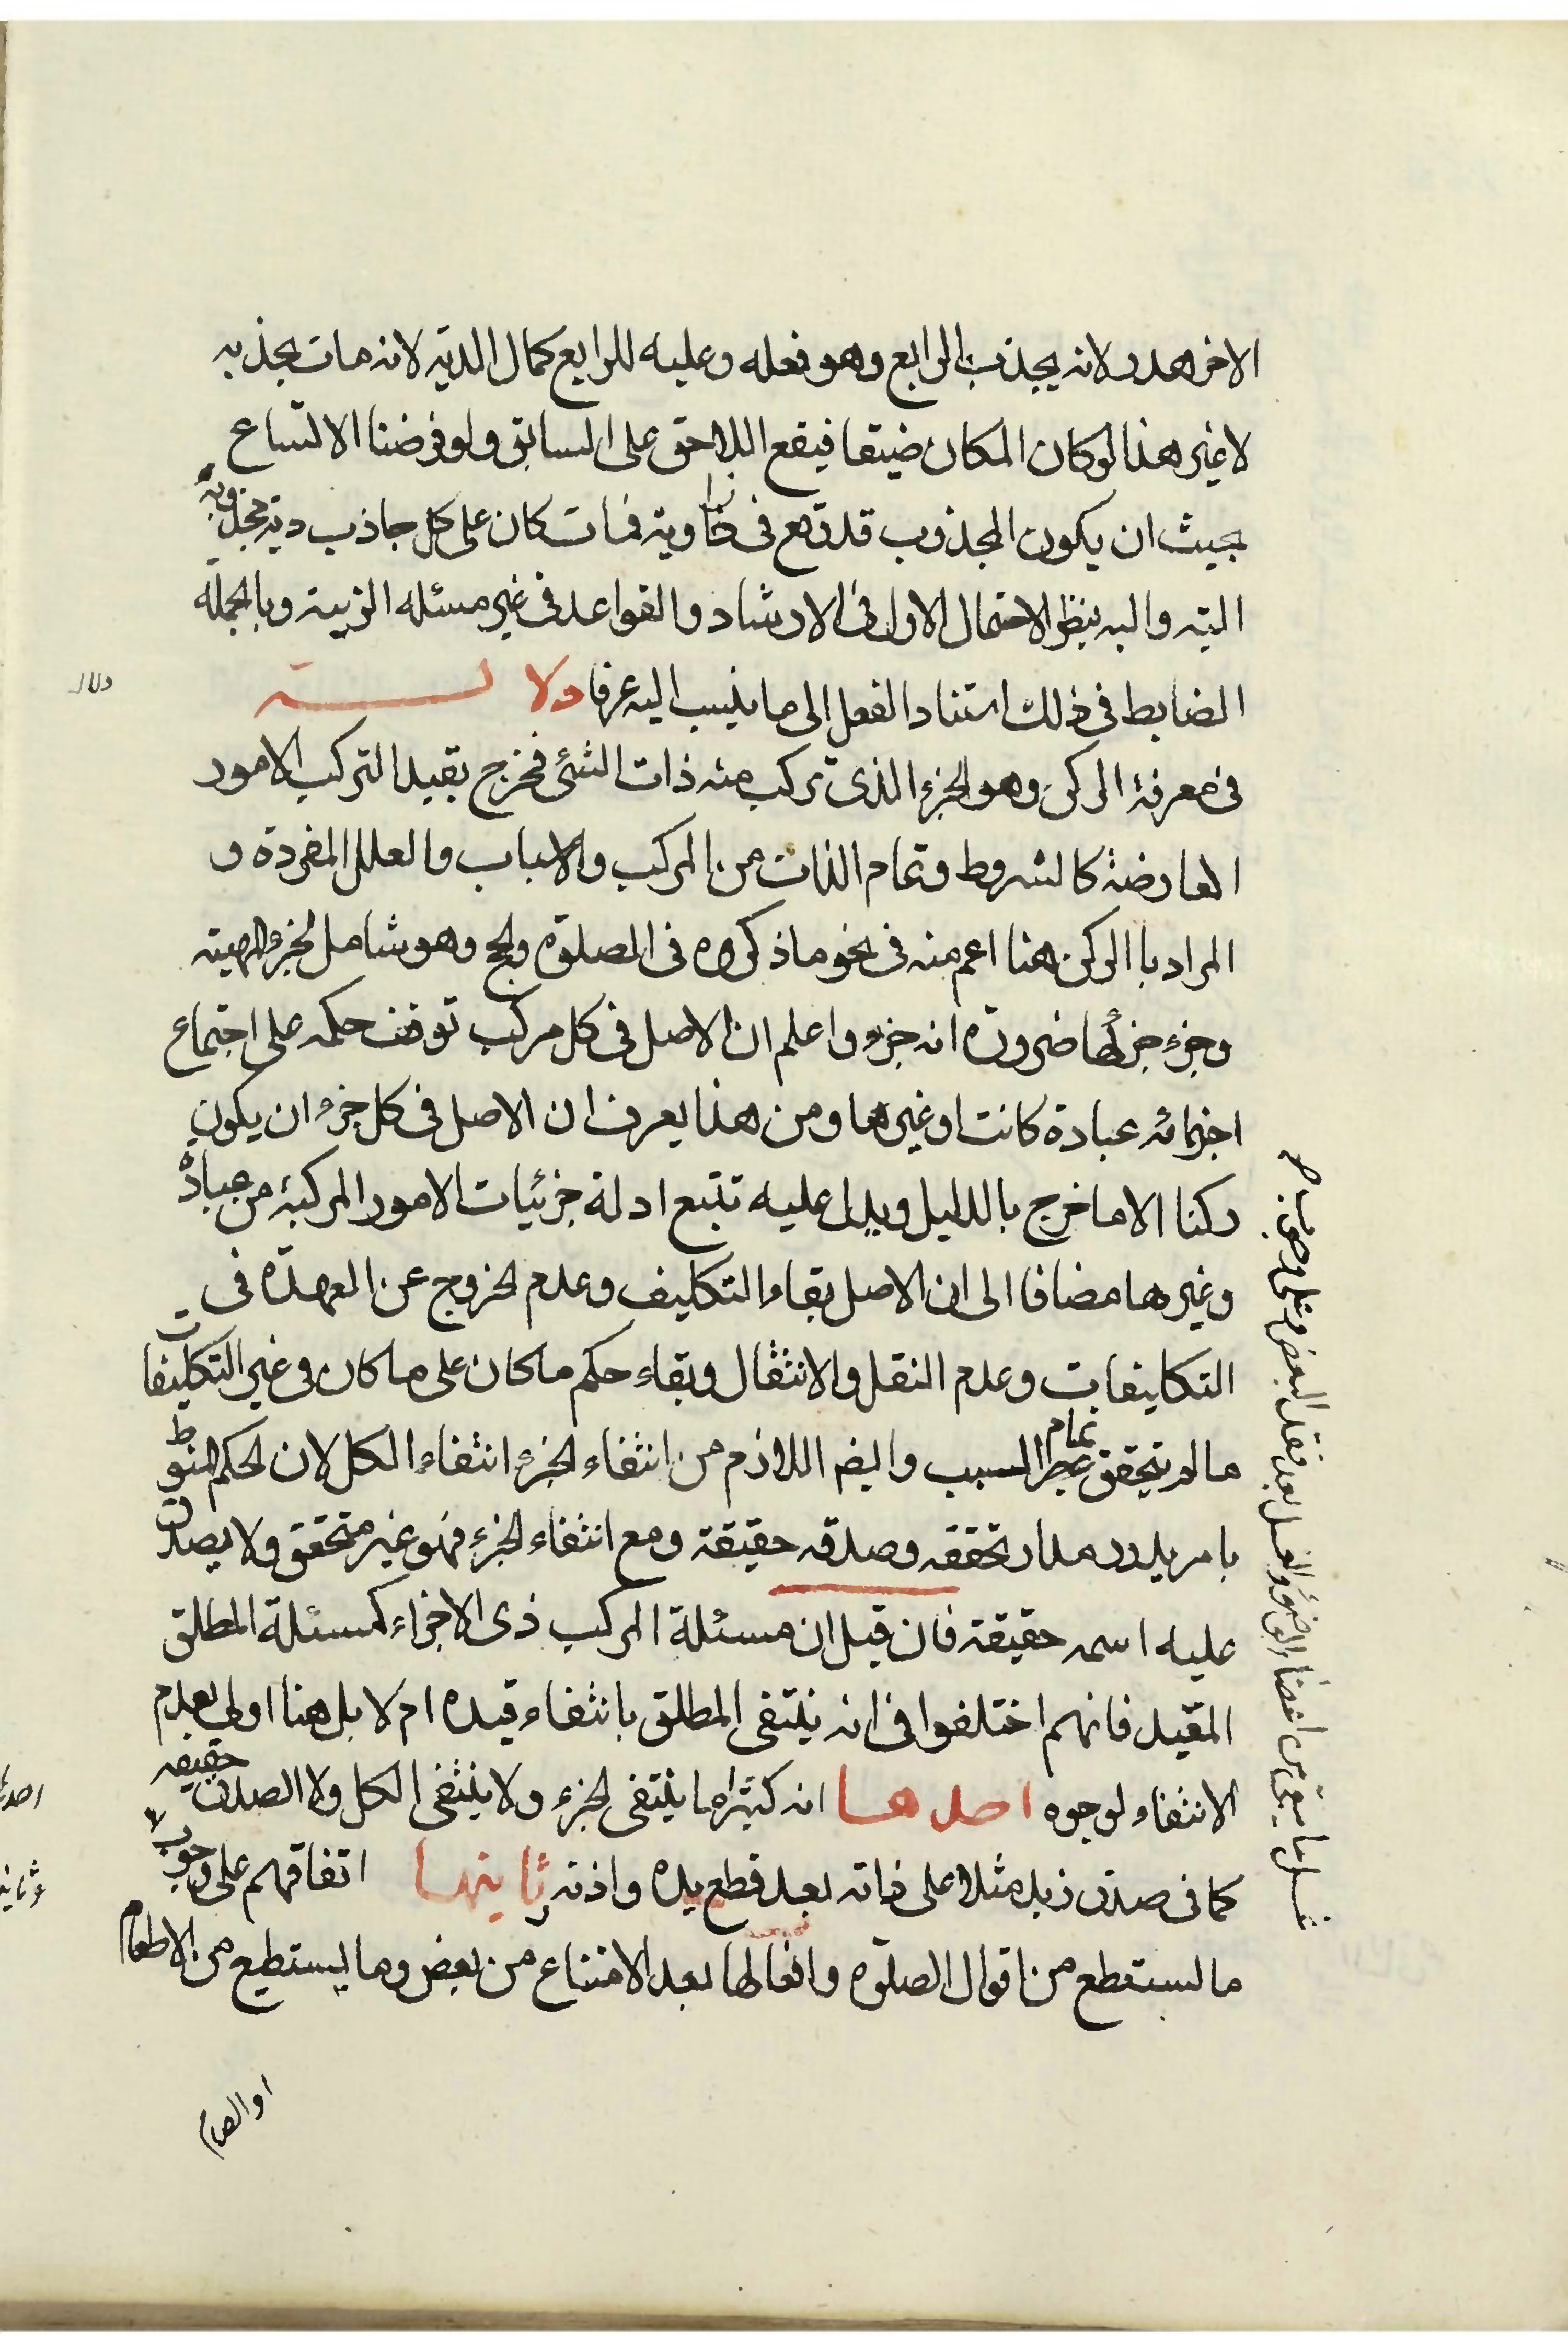 الاخر هدر لانه يجذب الرابع وهو فعله وعليه للرابع كمال الدية لانه مات بجذبه
لا غير هذا لو كان المكان ضيقا فيقع اللاحق على السابق ولو فرضنا الاتساع
بحيث ان يكون المجذوب قد وقع فى زاوية فمات كان على كل جاذب دية مجذوبه
البته واليه ينظر الاحتمال الاول فى الارشاد والقواعد فى غير مسئله الزبية وبالجملة
الضابط فى ذلك استناد الفعل الى ما ينسب اليه عرفا دلالــــــة
فى معرفة الركن وهو الجزء الذى تركب منه ذات الشئ فخرج بقيد التركب الامور
العارضة كالشروط وتمام الذات من المركب والاسباب والعلل المفردة و
المراد باالركن هنا اعم منه فى نحو ما ذكروه فى الصلوة والحج وهو شامل لجزء المهية
وجزء جزئها ضرورة انه جزء واعلم ان الاصل فى كل مركب توقف حكمه على اجتماع
اجزائه عبادة كانت او غيرها ومن هذا يعرف ان الاصل فى كل جزء ان يكون
ركنا الا ما خرج بالدليل ويدل عليه تتبع ادلة جزئيات الامور المركبة من عبادة
وغيرها مضافا الى ان الاصل بقاء التكليف وعدم الخروج عن العهدة فى
التكليفات وعدم النقل والانتقال وبقاء حكم ما كان على ما كان فى غير التكليفات
ما لم يتحقق تمام السبب وايضا اللازم من انتفاء الجزء انتفاء الكل لان الحكم المنوط
بامر يدور مدار تحققه وصدقه حقيقة ومع انتفاء الجزء فهو غير متحقق ولا يصدق
عليه اسمه حقيقة فان قيل ان مسئلة المركب ذى الاجزاء كمسئلة المطلق
المقيد فانهم اختلفوا فى انه ينتفى المطلق بانتفاء قيده ام لا بل هنا اولى بعدم
الانتفاء لوجوه احدها انه كثيرا ما ينتفى الجزء ولا ينتفى الكل ولا الصدق حقيقه
كما فى صدق زيد مثلا على ذاته بعد قطع يده واذنه ثانيها اتفاقهم على وجوب
ما يستطع من اقوال الصلوة وافعالها بعد الامتناع من بعض وما يستطيع من الاطعام
او الصيام
غسل ما بقى من اعضاء الوضوء والغسل بعد فقد البعض وعلى وجوب